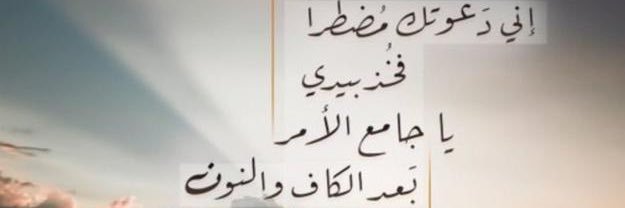 إني دَعوتك مُضطرا
فخُذ بيدي
يا جامع الأمر
بَعد الكاف والنون